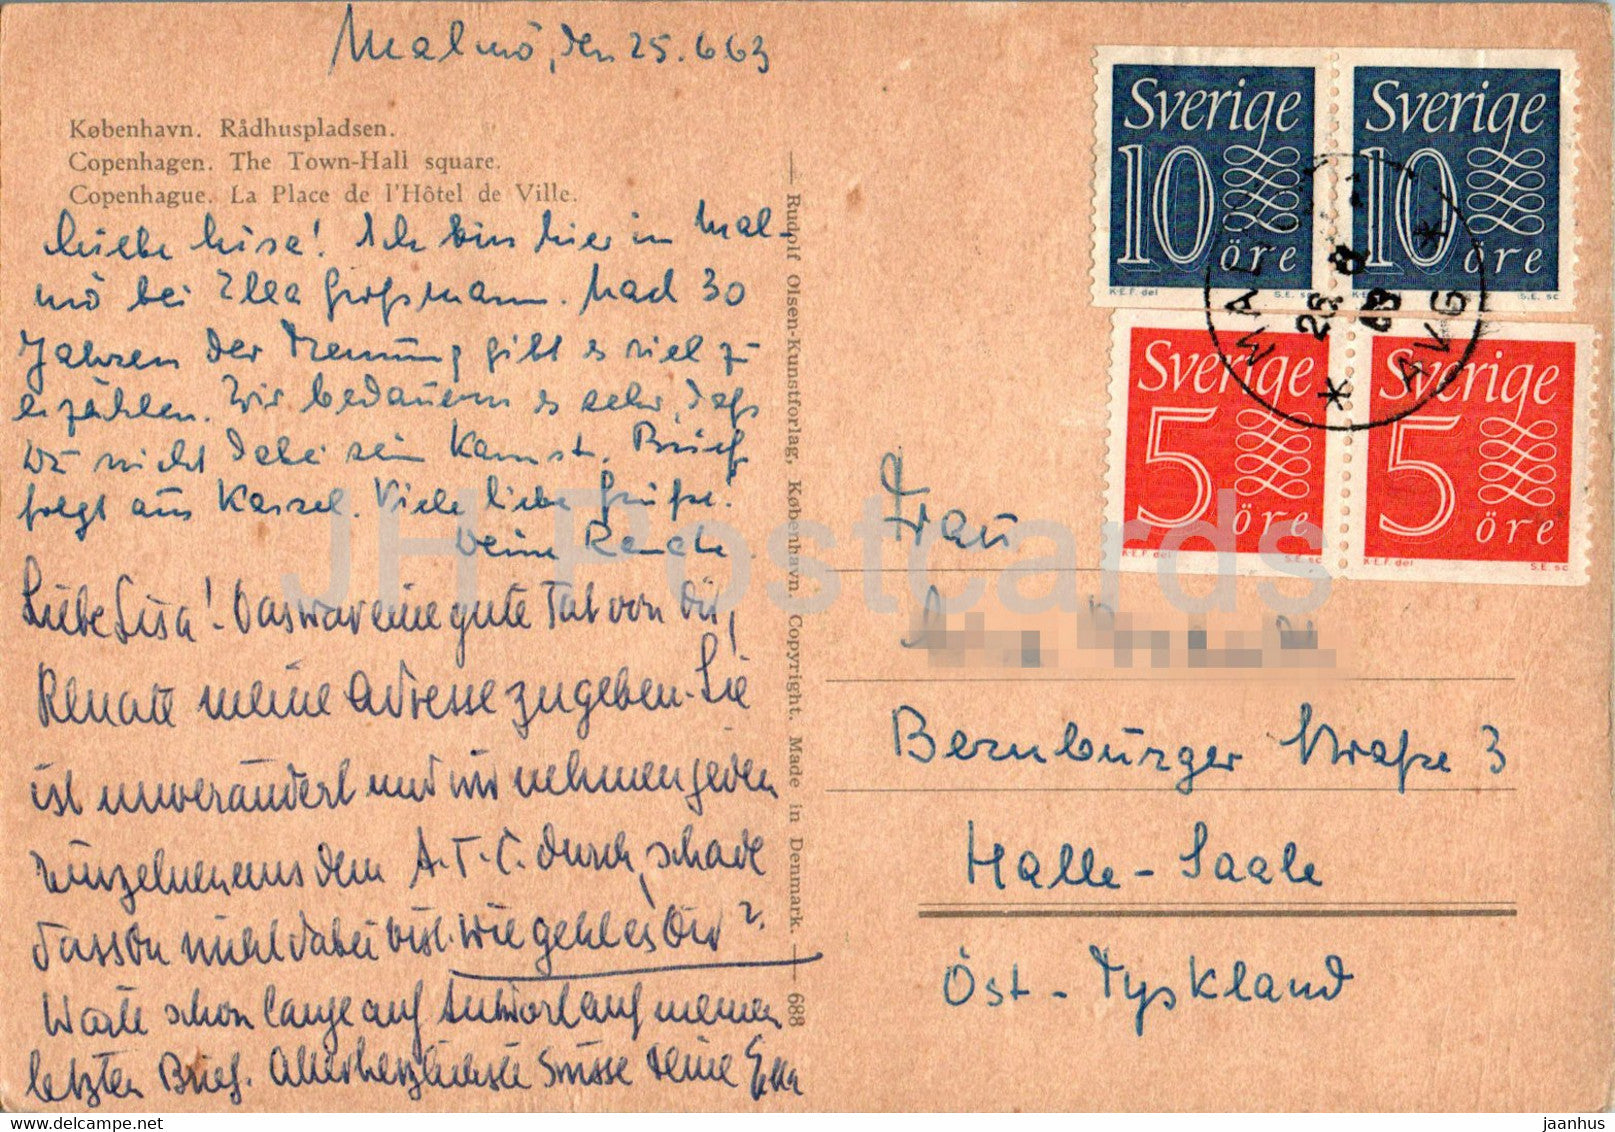 Malmö, den 25.6 63
København. Rådhuspladsen.
Copenhagen. The Town-Hall square.
Copenhague. La Place de l'Hôtel de Ville.
Liebe Lisa! Ich bin hier in Mal-
mö bei Ella Großmann. Nach 30
Jahren der Trennung gibt es viel zu
erzählen. Wir bedauern es sehr, daß
Du nicht dabei sein kannst. Brief
folgt aus Kassel. Viele liebe Grüße!
Deine Renate
Liebe Lisa! Das war eine gute Tat von Dir,
Renate meine Adresse zugeben. Sie
ist unverändert und wir nehmen jeden
einzelnen aus dem A.T.C. durch, schade
dass Du nicht dabei bist. Wie geht es Dir?
Warte schon lange auf Antwort auf meinen
letzten Brief. Allerherzlichste Grüsse Deine Ella
Rudolf Olsen-Kunstforlag, København. Copyright. Made in Denmark. — 688
Sverige
10
öre
K.E.F. del
S.E. sc
Sverige
10
öre
K.E.F. del
S.E. sc
Sverige
5
öre
K.E.F. del
S.E. sc
Sverige
5
öre
K.E.F. del
S.E. sc
MALMÖ
26
AVG
Frau
Bernburger Straße 3
Halle-Saale
Öst-Tyskland
JH Postcards
jaanhus
delcampe.net